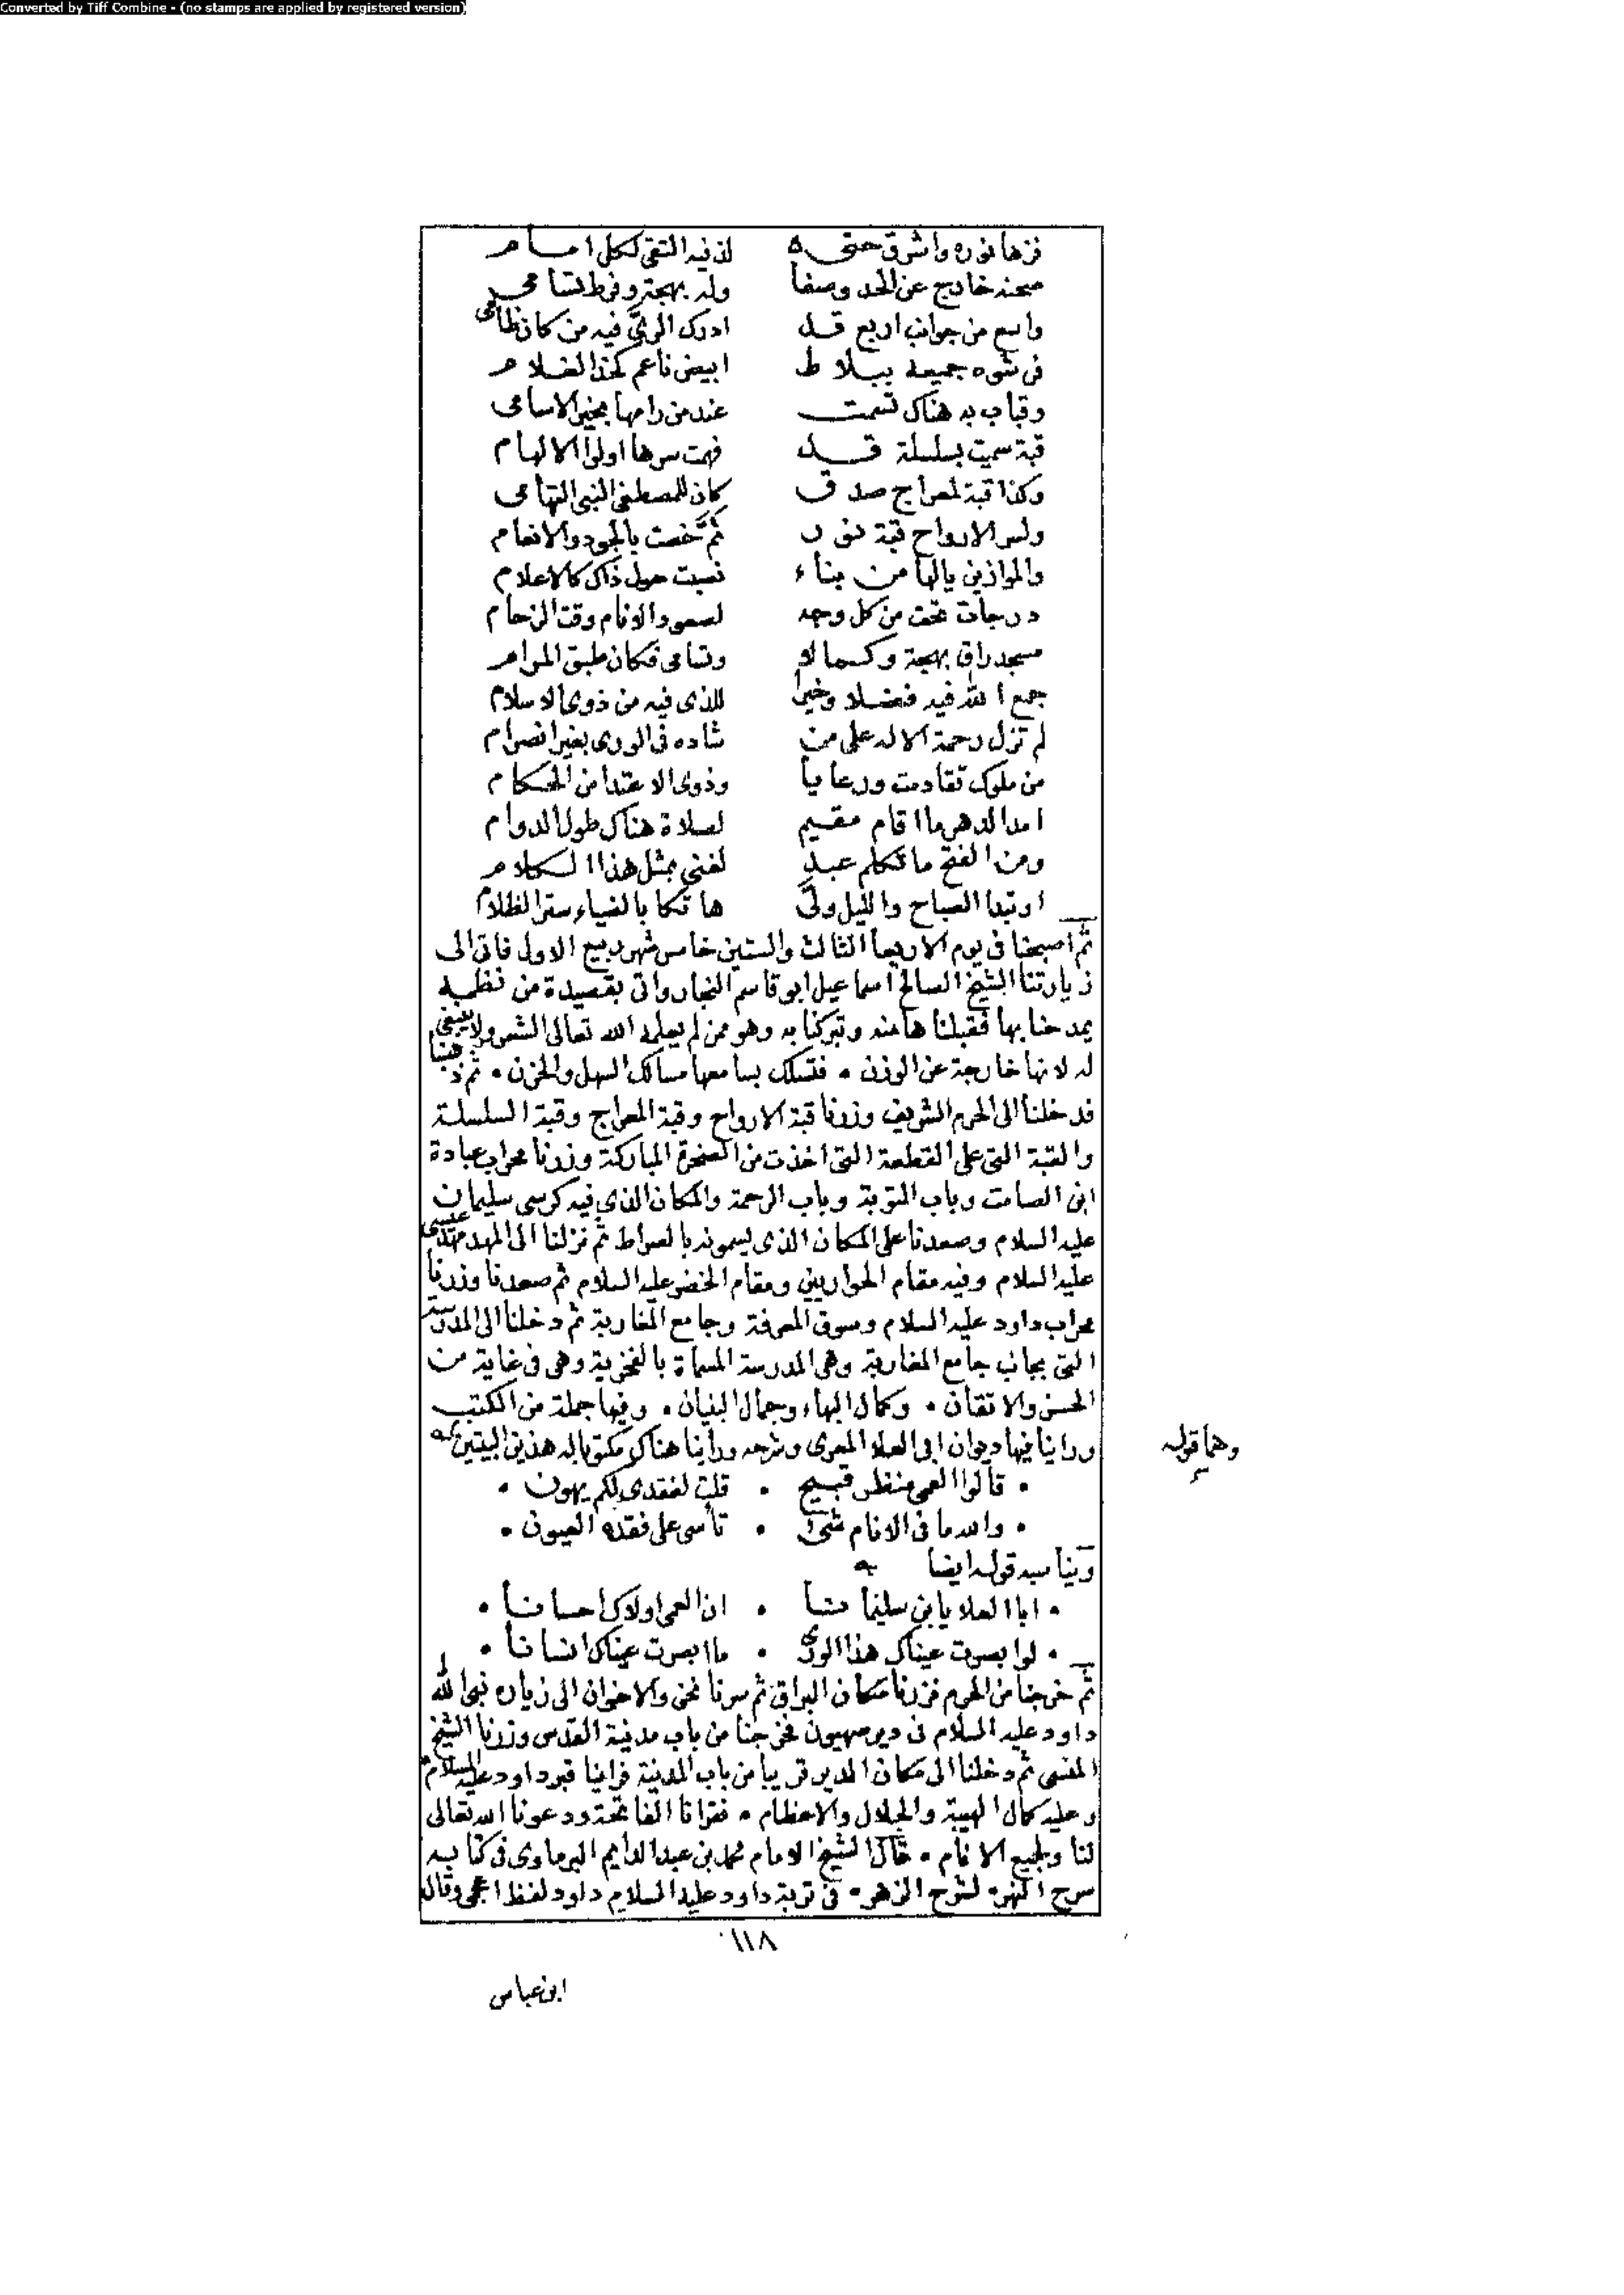 Converted by Tiff Combine - (no stamps are applied by registered version)
فزها نوره واشرق حتى لذ فيه التقى لكل امام
صحنه خارج عن الحد وصفا وله بهجة وفرط تسامى
واسع من جوانب اربع قد ادرك الرى فيه من كان ظامى
فرشوه جميعه ببلاط ابيض ناعم كخذ الغلام
وقباب به هناك تسمت عند من رامها بخير الاسامى
قبة سميت بسلسلة قد فهمت سرها اولوا الالهام
وكذا قبة لمعراج صدق كان للمصطفى النبى التهامى
ولسر الارواح قبة نور ثم خصت بالجود والانعام
والموازين يالها من بناء نصبت حول ذاك كالاعلام
درجات تحت من كل وجه لصعود الانام وقت الزحام
مسجد راق بهجة وكمالا وتسامى فكان طبق المرام
جمع الله فيه فضلا وخيرا للذى فيه من ذوى الاسلام
لم تزل رحمة الاله على من شاده فى الورى بغير انصرام
من ملوك تقادمت ورعايا وذوى الاعتدا من الحكام
امد الدهر ما اقام مقيم لصلاة هناك طول الدوام
ومن الفتح ما تكلم عبد لغنى بمثل هذا الكلام
او تبدا الصباح والليل ولى هاتكا بالضياء ستر الظلام
ثم اصبحنا فى يوم الاربعا الثالث والستين خامس شهر ربيع الاول فاتى الى
زيارتنا الشيخ الصالح اسماعيل ابو قاسم النجار واتى بقصيدة من نظمه
يمدحنا بها فقبلناها منه وتبركنا به وهو ممن لم يعلمه الله تعالى الشعر ولا ينبغى
له لانها خارجة عن الوزن • فتسلك بسامعها مسالك السهل والحزن • ثم ذهبنا
فدخلنا الى الحرم الشريف وزرنا قبة الارواح وقبة المعراج وقبة السلسلة
والقبة التى على القطعة التى اخذت من الصخرة المباركة وزرنا محراب عبادة
ابن الصامت وباب التوبة وباب الرحمة والمكان الذى فيه كرسى سليمان
عليه السلام وصعدنا على المكان الذى يسمونه بالصراط ثم نزلنا الى المهد مهد عيسى
عليه السلام وفيه مقام الحواريين ومقام الخضر عليه السلام ثم صعدنا وزرنا
محراب داود عليه السلام وسوق المعرفة وجامع المغاربة ثم دخلنا الى المدرسة
التى بجانب جامع المغاربة وهى المدرسة المسماة بالفخرية وهى فى غاية من
الحسن والاتقان • وكمال البهاء وجمال البنيان • وفيها جملة من الكتب
وراينا فيها ديوان ابى العلا المعرى وشرحه وراينا هناك مكتوبا له هذين البيتين
وهما قوله
• قالوا العمى منظر قبيح • قلت لفقدى لكم يهون •
• والله ما فى الانام شئ • تأسى على فقده العيون •
ويناسبه قوله ايضا
• ابا العلا يا بن سليمانا • ان العمى اولاك احسانا •
• لو ابصرت عيناك هذا الورى • ما ابصرت عيناك انسانا •
ثم خرجنا من الحرم فزرنا مكان البراق ثم سرنا نحن والاخوان الى زيارة نبى الله
داود عليه السلام فى دير صهيون فخرجنا من باب مدينة القدس وزرنا الشيخ
المنسى ثم دخلنا الى مكان الدير قريبا من باب المدينة فراينا قبر داود عليه السلام
وعليه كمال الهيبة والجلال والاعظام • فقرانا الفاتحة ودعونا الله تعالى
لنا ولجميع الانام • قال الشيخ الامام محمد بن عبد الدايم البرماوى فى كتابه
سرح النهر • لشرح الزهر • فى تربة داود عليه السلام داود لفظ اعجمى وقال
١١٨
ابن عباس